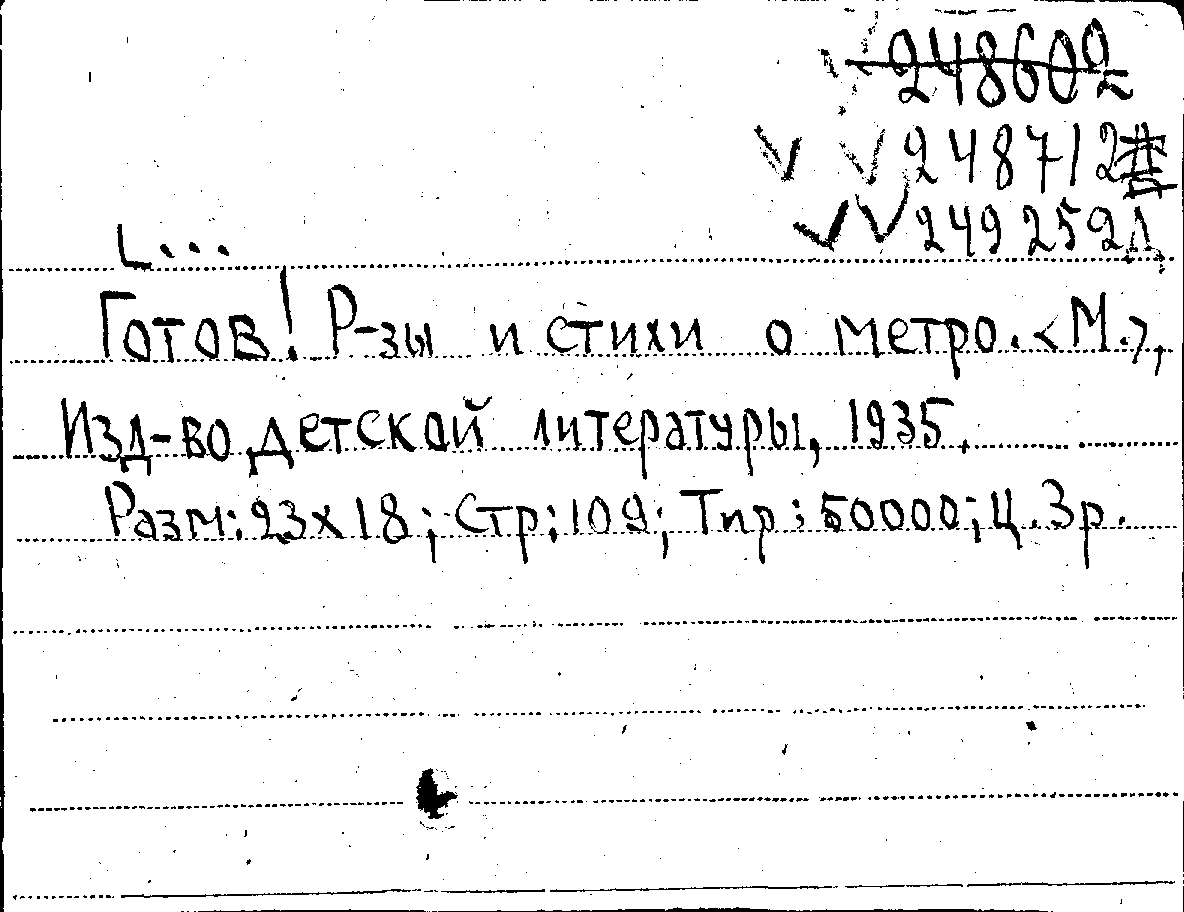 248602
248712
249259д
L...
Готов! Р-зы и стихи о метро. <М.>,
Изд-во детской литературы, 1935.
Разм: 23х18; Стр: 109; Тир: 50000; Ц. 3р.